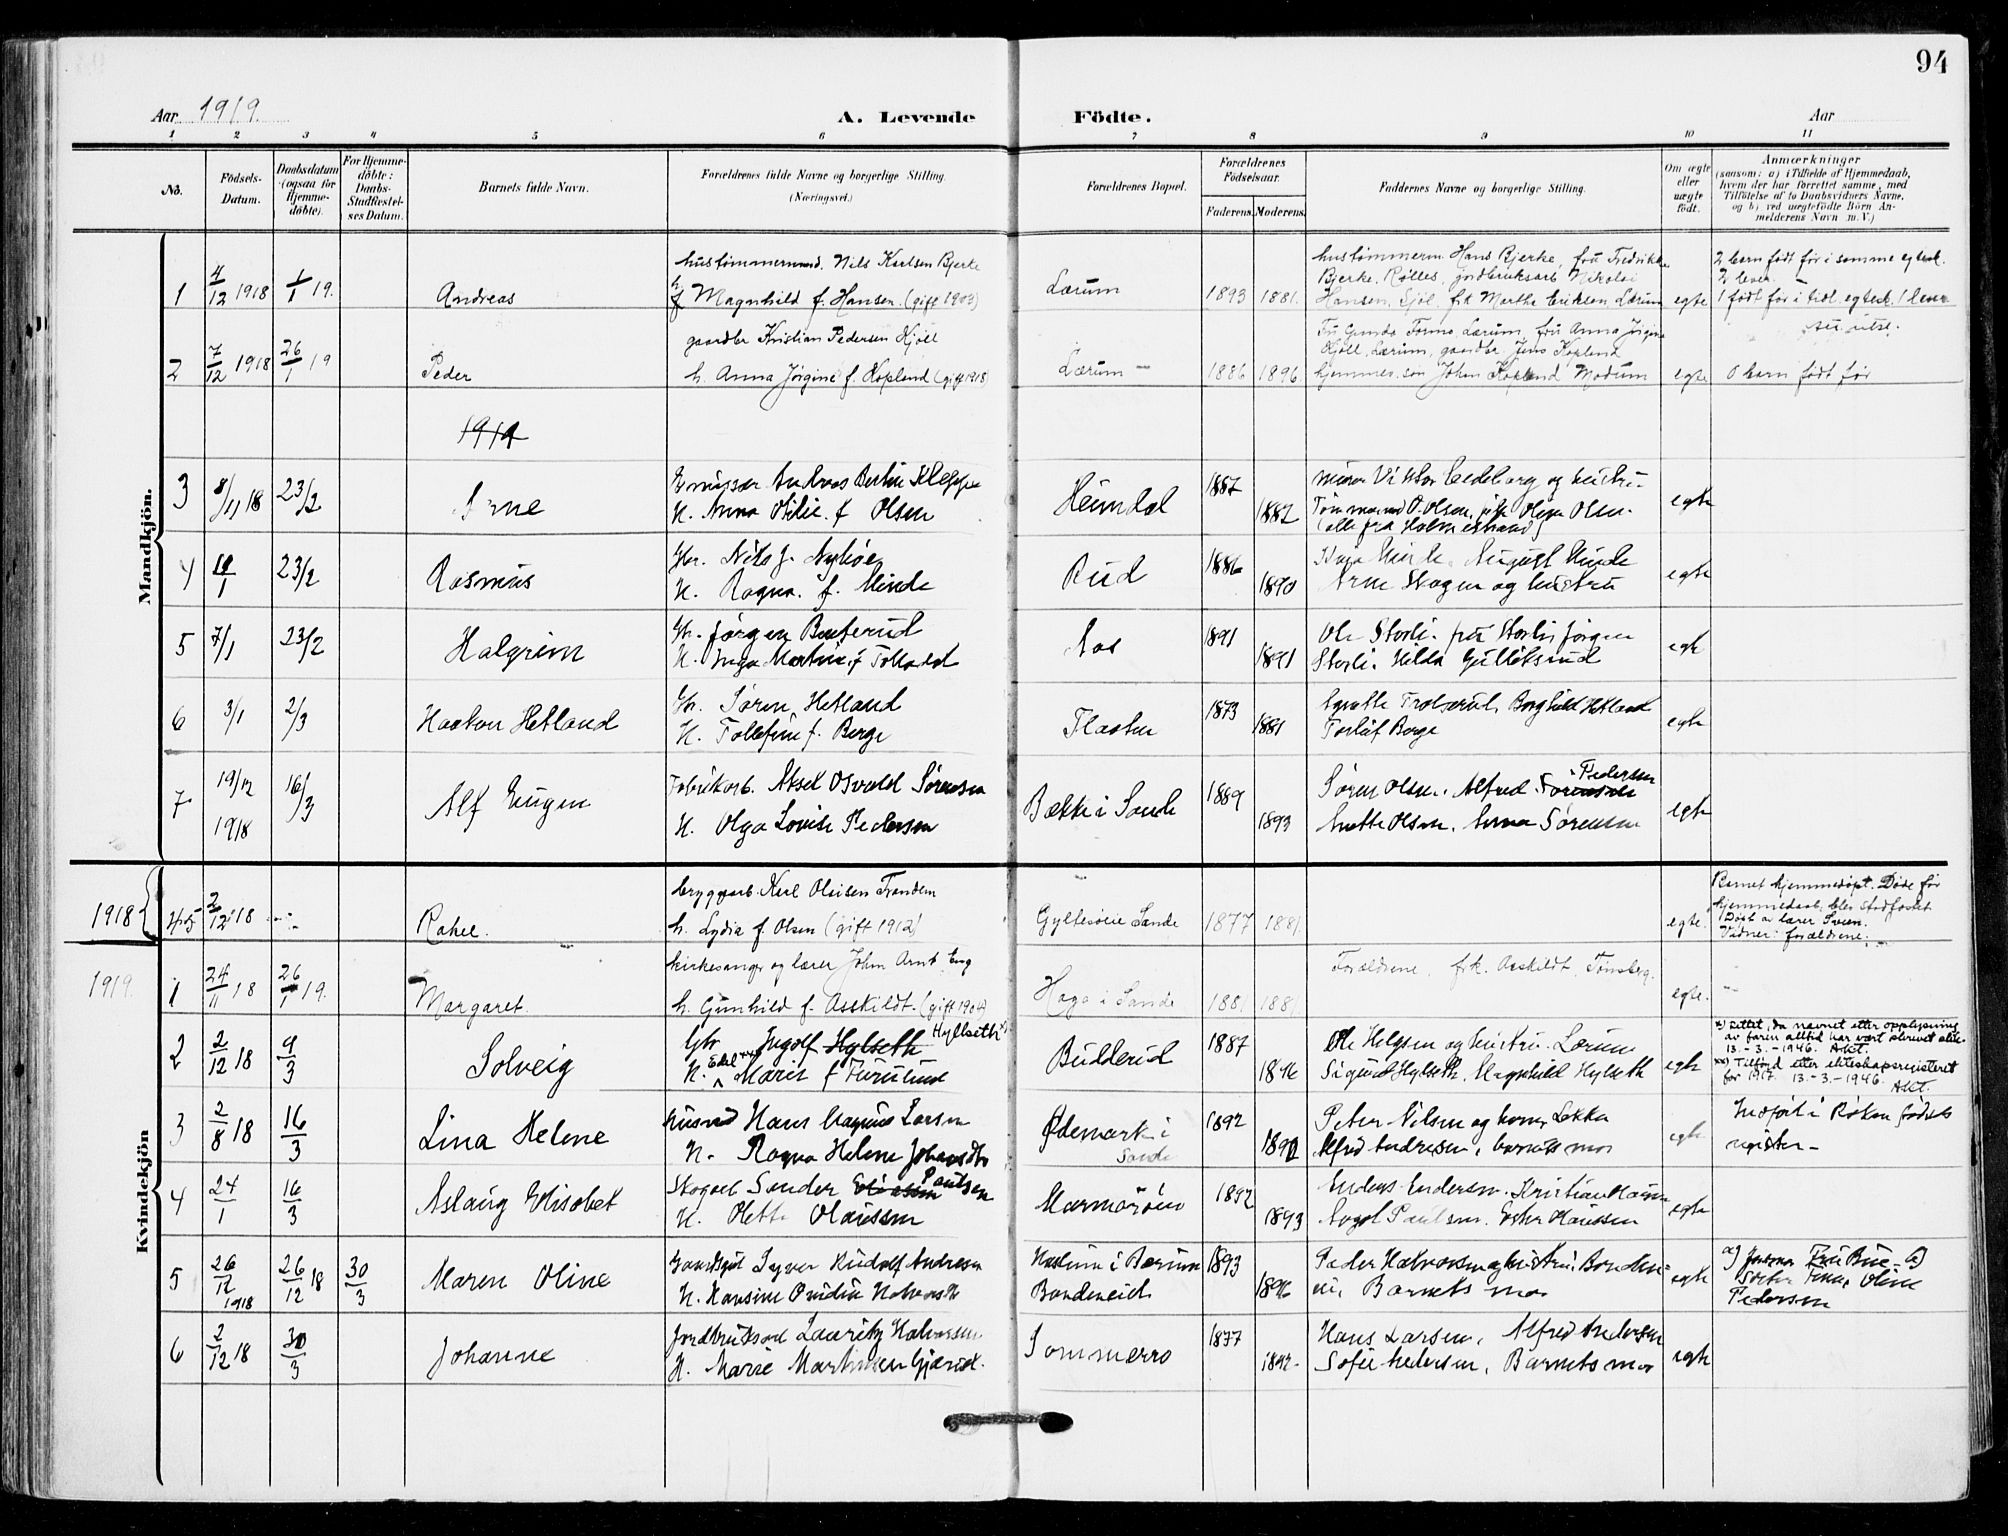 94
Aar 1919.
A. Levende Födte.
Aar
1 2 3 4 5 6 7 8 9 10 11
No.
Födsels-Datum.
Daabsdatum (ogsaa for Hjemme-döbte).
For Hjemme-döbte: Daabs-Stadfæstel-ses Datum.
Barnets fulde Navn.
Forældrenes fulde Navne og borgerlige Stilling. (Næringsvei.)
Forældrenes Bopæl.
Forældrenes Födselsaar.
Faderens. Moderens.
Faddernes Navne og borgerlige Stilling.
Om ægte eller uægte födt.
Anmærkninger
(saasom: a) i Tilfælde af Hjemmedaab,
hvem der har forrettet samme, med
Tilföielse af to Daabsvidners Navne.
og b) ved uægtefödte Börn An-
melderens Navn m. V.)
Mandkjön.
1 4/12 1918 1/1 19. Andreas
hustømmermand. Nils Karlsen Bjerke
h. Magnhild f. Hansen. (gift 1903)
Lærum 1893 1881.
hustømmerm. Hans Bjerke, fru Fredrikke
Bjerke, Rølles, jordbruksarb Nikolai
Hansen, Sjöl, frk Marthe Eriksen Lærum
egte
2 barn født før i samme egtesk.
2 lever.
1 født før i tidl. egtesk. 1 lever
2 7/12 1918 26/1 19 Peder
gaardbr Kristian Pedersen Hjöll
h. Anna Jörgine f. Kopland (gift 1918)
Lærum 1886 1896.
Fru Gunda Formo, Lærum, fru Anna Jörgine
Hjöll, Lærum, gaardbr. Jens Kopland
hjemmev. søn Johan Kopland Modum
egte 0 barn født før
1919
3 8/11 18 23/2 Arne
Emissær Andreas Bertin Kleppe
H. Anna Otilie f Olsen
Heimdal 1887 1882
Viktor Cedeborg og hustru
Tömmermand O. Olsen, frk Olga Olsen.
(alle fra Holmestrand)
egte
4 23/2 Rasmus
Gbr. Nils J. Nyhöe
H. Ragna. f. Minde
Rud 1886 1890
August Minde
Arne Skogen og hustru
egte
5 7/1 23/2 Halgrim
Gbr. Jörgen Bakerud
H. Inga Martine f Tollald
Aas 1891 1891
Ole Storli. fru Storli, Jörgen
Storli. Hilda Gulliksrud
egte
6 3/1 2/3 Haakon Hetland
Gbr. Sören Hetland
H. Tollefine f. Berge
Flaaten 1873 1881
Borghild Hetland
Torluf Berge
egte
7 19/12 1918 16/3 Alf Eugen
Fabrikarb. Aksel Osvald Sörensen
H. Olga Lovise Pedersen
Bække i Sande 1889 1893
Sören Olsen. Alfred Sörensen Pedersen
Anette Olsen. Anna Sörensen
egte
1918
45 2/12 18 -:- Rakel.
bryggearb. Karl Olsisen Trandem
h. Lydia f. Olsen (gift 1912)
Gyltesöie Sande 1877 1881.
egte.
Barnet hjemmedöpt. Döde før
hjemmedaab blev stadfæstet
Döbt av lærer Sveen.
Vidner: forældrene.
1919.
Kvindekjön
1 24/11 18 26/1 19. Margaret.
kirkesanger og lærer John Arnt Eng
h. Gunhild f. Asskildt. (gift 1904)
Haga i Sande 1881 1881
Forældrene, frk. Asskildt, Tønsberg.
egte.
2 2/12 18 9/3 Solveig
Gbr Ingolf Hylseth Hyllseth x)
H. Edel xx) Marie f Furulund
Bullerud 1887 1896
Ole Helgsen og hustru. Lærum
Sigurd Hylseth. Magnhild Hylseth
egte
x) rettet, da navnet etter opplysning
av faren alltid har vært skrevet slik.
13. - 3. - 1946. Akt.
xx) Tilføid etter ekteskapsregisteret
for 1917. 13. - 3. - 1946. Akt.
3 2/8 18 16/3 Lina Helene
Husmd Hans Magnus Larsen
H. Ragna Helene Johansdtr
Ødemark i Sande 1892 1890
Peter Nilsen og kone, Løkka
Alfred Andresen, barnets mor
egte
Indført i Röken födsels
register -
4 24/1 16/3 Aslaug Elisabet
Skogarb Sander Eliassen Paulsen
H. Olette Olaussen
Marmaröen 1892 1893
Anders Andersen. Kristian
Aagot Paulsen. Ester Hanssen
egte
5 26/12 1918 26/12 18 30/3 Maren Oline
Gaardsgut Syver Rudolf Andresen
H. Hansine Ovidia Halvorsdtr
Haslum i Bærum
Bondeneich 1893 1896
Peder Halvorsen og hustru Bonden-
eie, Barnets mor
egte
a) Jordmor Fru Bue
Oline
Pedersen
6 2/12 18 30/3 Johanne
Jordbruksarb Lauritz Halvorsen
H. Marie Martinsen Gjærud.
Sommerro 1877 1892-
Hans Larsen, Alfred Andersen
Sofie Andersen, Barnets mor
egte